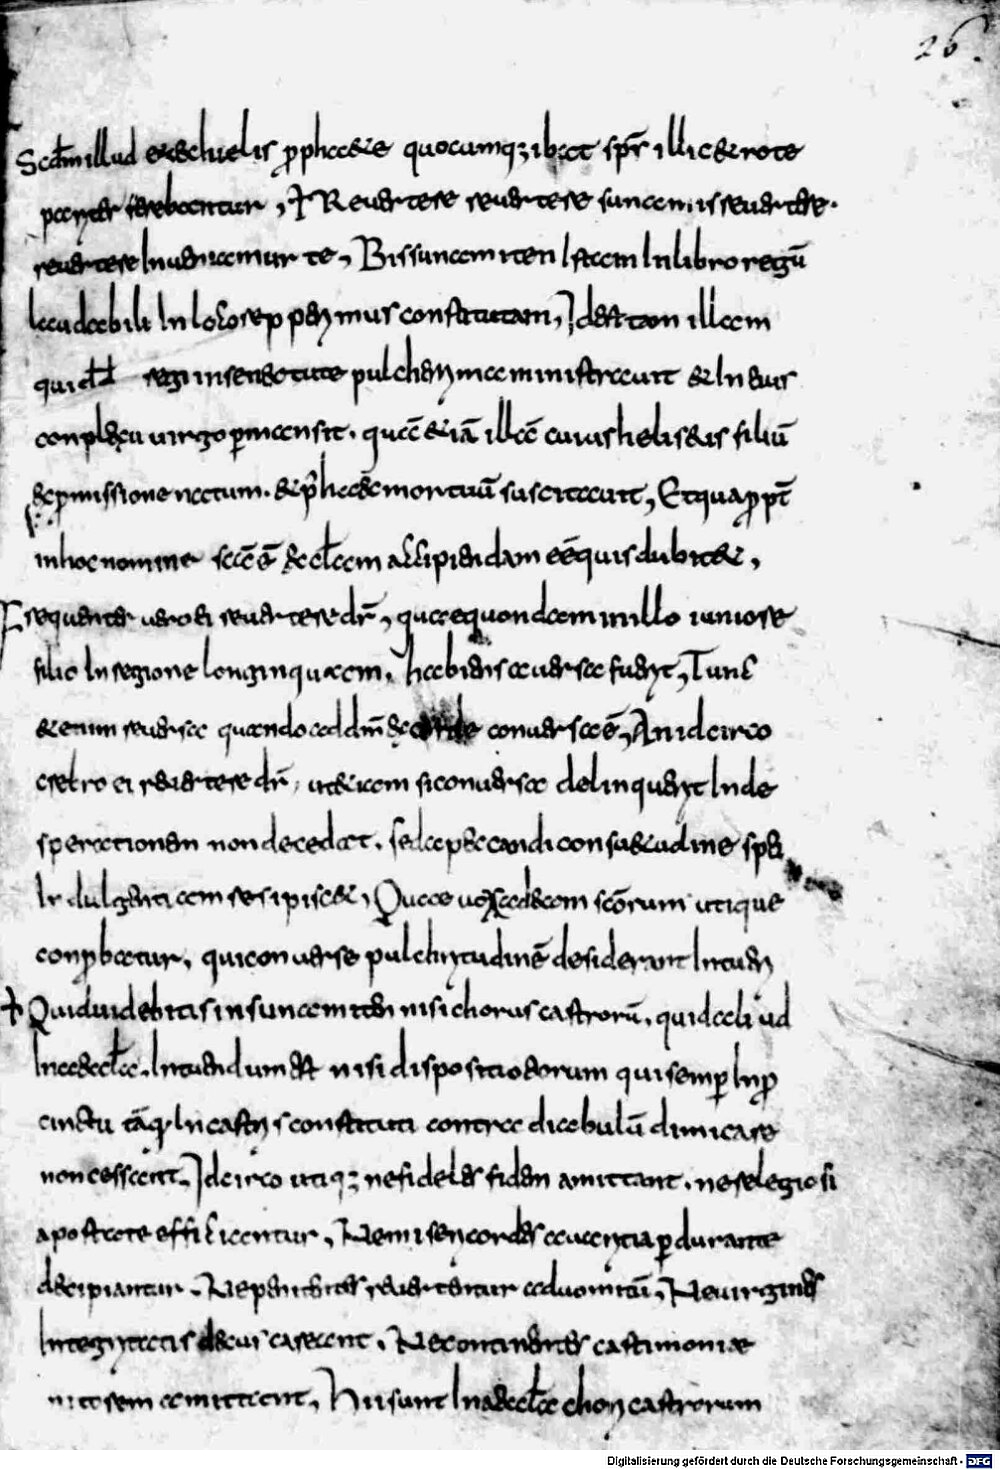 26.
Scdm illud ezechielis prophetae quocumq; ibat sps illic et rote
pariter ferebantur, Revertere revertere sunamis revertere.
revertere Inueamur te, Bis sunamiten Istam In libro regū
laudabili In loco repperimus constitutam, Id est tam illam
qui dd regi in senectute pulcherrima ministravit et In eius
complexu virgo pmansit. quā etiā illā cuius heliseus filiū
et pmissione natum. et phac mortuū suscitavit, Et qua ppt
in hoc nomine scām eccl̄am accipiendam eē quis dubitet,
sequenter vero ei revertere dr̄, quae quondam in illo iuniore
filio In regione longinquam, habiens aversa fuerit, Tunc
etenim reversa quando ad dm̄ de conversa ē, An idcirco
cre ro ei revertere dr̄, ut etiam si conversa delinquerit Inde
sperationem non decedat. sed a peccandi consuetudine spei
Indulgentiam resipiscet, Quae vox eccl̄iam scōrum utique
conpbatur, qui converse pulchritudinē desiderant Intueri
Quid videbitis in sunamiten nisi chorus castrorū, quid aliud
In eccl̄a. Intuendum est nisi dispositio eorum qui semp In p
cinctu tāq; In castris constituti contra diabulū dimicare
non cessant, Idcirco utiq; ne fideles fidem amittant. ne relegiosi
apostate efficiantur, Ne misericordes avaritia pdurante
decipiantur. Ne penitentes revertentur ad vomitū, Ne virgines
Integritatis decus careant. Ne continentes castimoniae
nitorem amittant, Hii sunt In eccl̄a chori castrorum
Digitalisierung gefördert durch die Deutsche Forschungsgemeinschaft - DFG